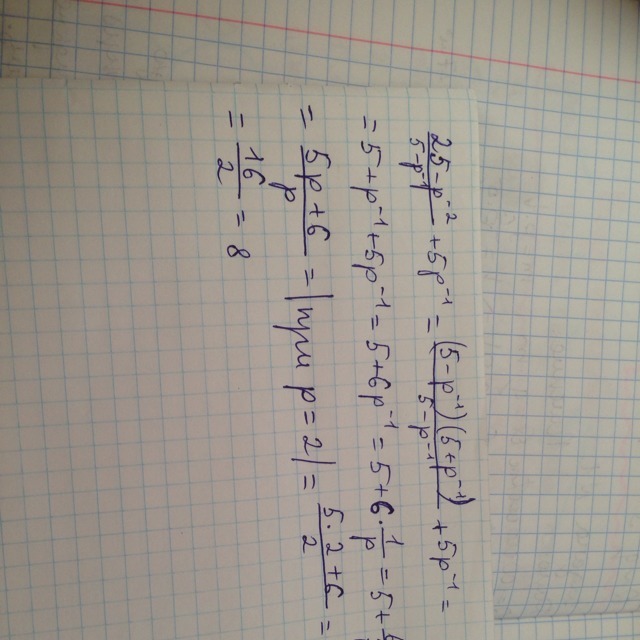 (25-p⁻²)/(5-p⁻¹) + 5p⁻¹ = ((5-p⁻¹)(5+p⁻¹))/(5-p⁻¹) + 5p⁻¹ =
= 5+p⁻¹+5p⁻¹ = 5+6p⁻¹ = 5+6·1/p = 5+
= (5p+6)/p = |при p=2| = (5·2+6)/2 =
= 16/2 = 8